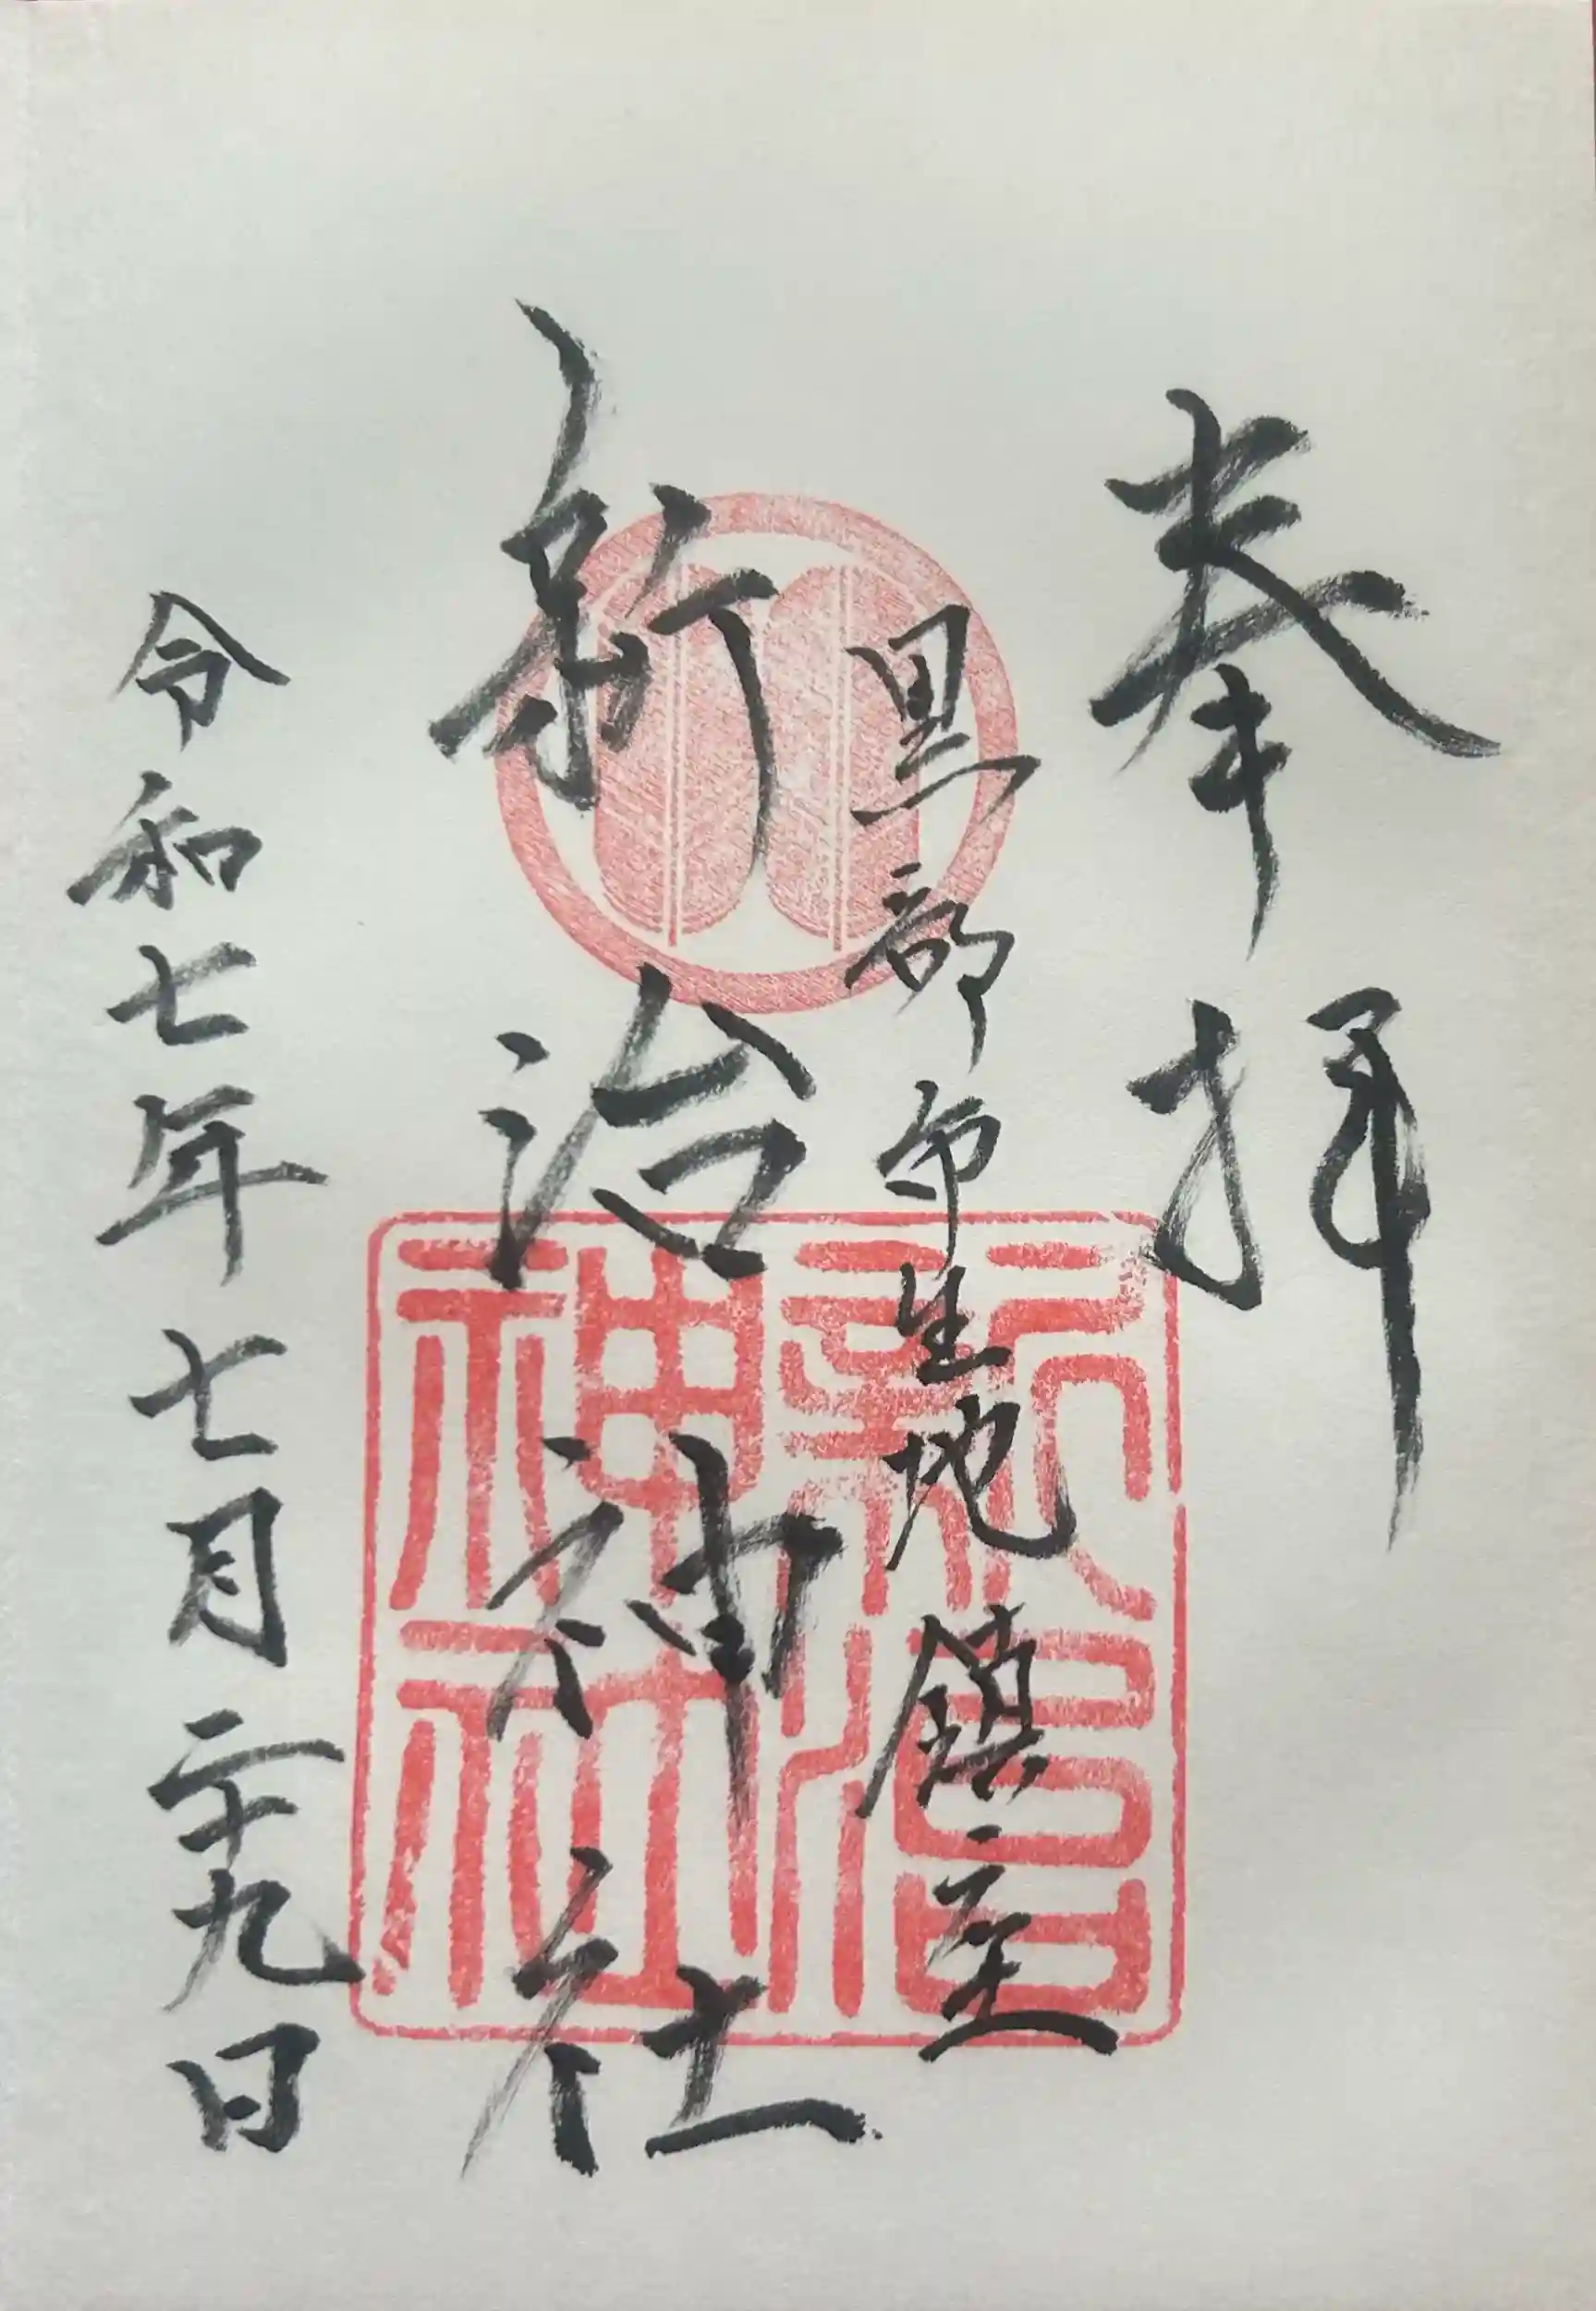 奉拝
黒部市生地鎮座
新治神社
令和七年七月二十九日
新治
神社